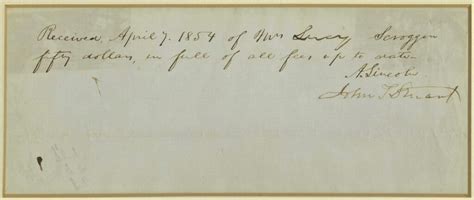 Received, April 7. 1854 of Mrs Scroggin
fifty dollars, in full of all fees up to date.
A. Lincoln
John T. Stuart